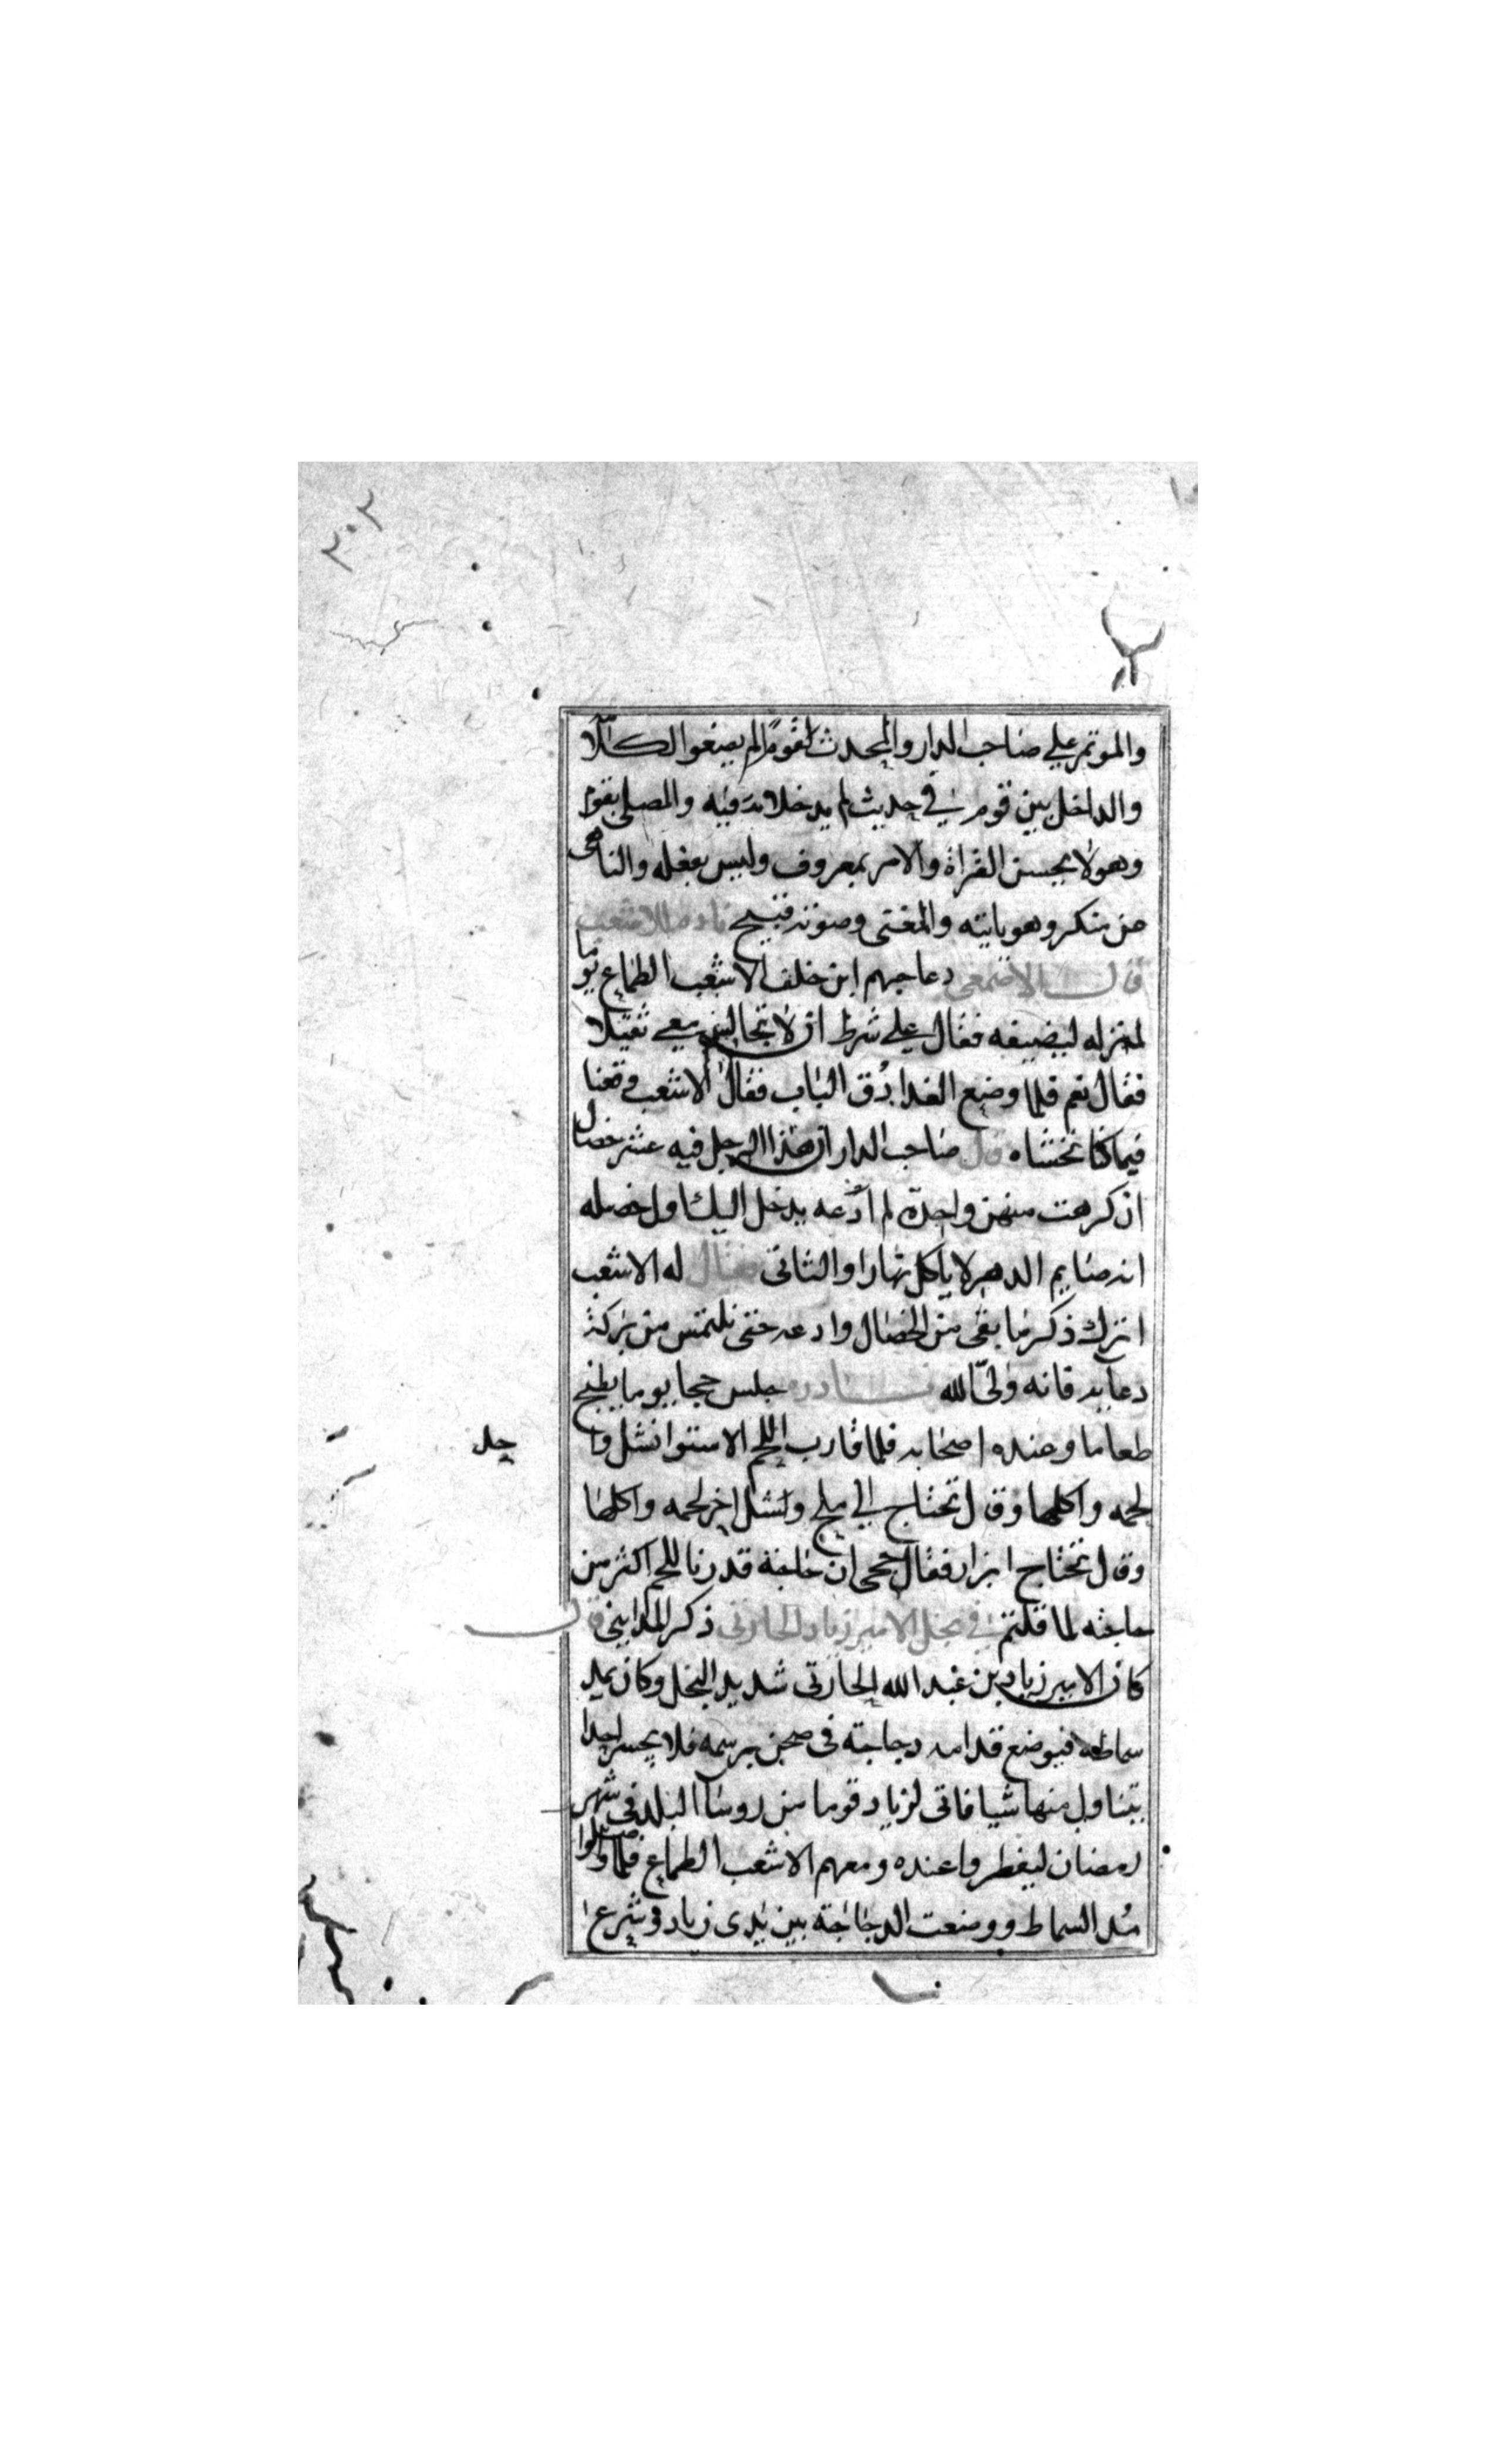 ٣٠٢
والموتمر علي صاحب الدار والمحدث لقوم لم يصغوا له كاملا
والداخل بين قوم في حديث لم يدخلانه فيه والمصلي بقوم
وهو لا يحسن القراة والامر بمعروف وليس يفعله والناهى
عن منكر وهو ياتيه والمغنى وصوته قبيح نادره للاشعب
قال الاصمعى دعا جهم ابن خلف الاشعب الطماع يوما
لمنزله ليضيفه فقال علي شرط ان لا تجالس معي ثقيلا
فقال نعم فلما وضع الغدا دُق الباب فقال الاشعب وقعنا
فيما كنا نخشاه قال صاحب الدار ان هذا الرجل فيه عشر خصال
ان كرهت منهن واحدة لم ادعه يدخل اليك اول خصله
انه صايم الدهر لا ياكل نهارا والثانى فقال له الاشعب
اترك ذكر ما بقى من الخصال وادعه حتى نلتمس من بركة
دعايه فانه ولىّ الله نادره جلس جحا يوما يطبخ
طعاما وعنده اصحابه فلما قارب اللحم الاستوا نشل وا
حل
لحمه واكلها وقال تحتاج الي ملح ونشل اخر لحمه واكلها
وقال تحتاج ابزار فقال جحى ان حاجة قدرنا للحم اكثر من
حاجته لما قلتم في بخل الامير زياد الحارثى ذكر المداينى قال
كان الامير زياد بن عبد الله الحارثى شديد البخل وكان يمد
سماطه فيوضع قدامه دجاجة فى صحن برسمه فلا يجسر احدا
يتناول منها شيا فاتى لزياد قوما من روسا البلد فى شهر
رمضان ليفطروا عنده ومعهم الاشعب الطماع فلما وصلوا
مُد السماط ووضعت الدجاجة بين يدى زياد وشرع